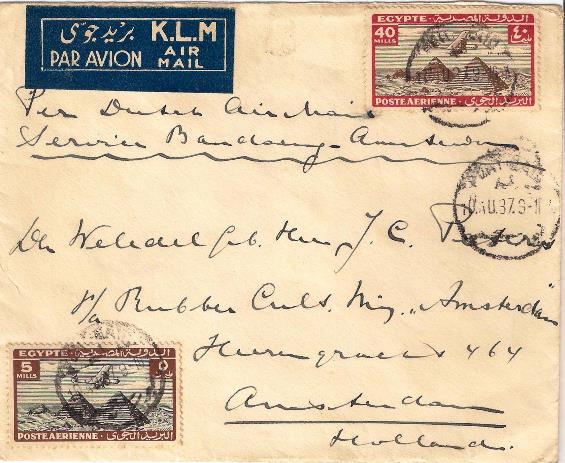 بريد جوى K.L.M
PAR AVION AIR MAIL
EGYPTE الدولة المصرية
40 MILLS ٤٠ مليم
POSTE AERIENNE - البريد الجوى
Per Dutch Air Mail
Service Bandoeng - Amsterdam
PORT
AU.37.9-
Den Weledelgeb. Heer J. C.
p/a Rubber Cult. Mij. „Amsterdam"
Heerengracht 464
Amsterdam
Holland.
EGYPTE الدولة المصرية
5 MILLS ٥ مليم
POSTE AERIENNE - البريد الجوى